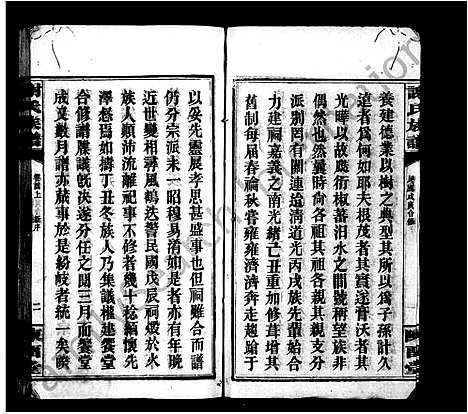 謝氏族譜
養建德業以樹之典型其所以爲子孫計久
遠者爲何如耶夫根茂者其實遂膏沃者其
光曄以故應衍椒蕃汨水之間號稱望族非
偶然也然曩時自各祖其祖各親其親支分
派別罔有關連逮清道光丙戌族先輩始合
力建祠嘉義之南光緒亡丑重加修葺增其
舊制每届春禴秋嘗雍雍濟濟奔走趨蹌于
以妥先靈展孝思甚盛事也但祠雖合而譜
仍分宗派未一昭穆易淆如是者亦有年晚
近世變相尋風鶴迭警民國戊辰祠燬於火
族人顛沛流離祀事不修者幾十稔緬懷先
澤惄焉如擣丁丑冬族人乃集議權建饗堂
合修譜牒議旣決遂分任之閱三月而饗堂
成又數月譜亦蕆事於是紛岐者統一矣睽
謝氏族譜
卷首上
序
二